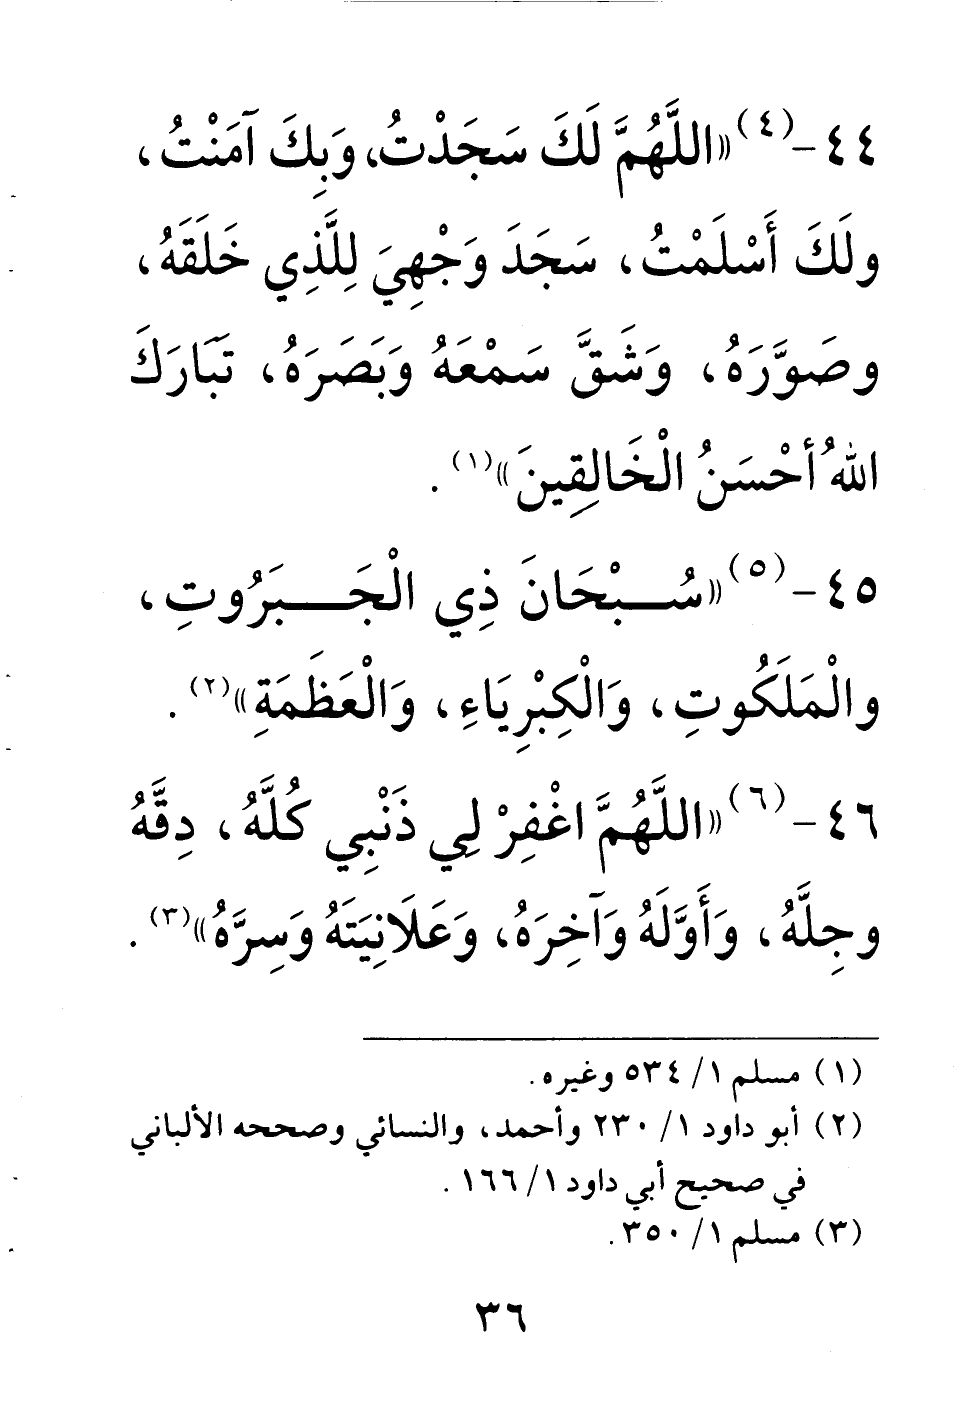 ٤٤-(٤) «اللَّهُمَّ لَكَ سَجَدْتُ، وَبِكَ آمَنْتُ،
ولَكَ أَسْلَمْتُ، سَجَدَ وَجْهِيَ لِلَّذِي خَلَقَهُ،
وصَوَّرَهُ، وَشَقَّ سَمْعَهُ وَبَصَرَهُ، تَبَارَكَ
اللهُ أحْسَنُ الْخَالِقِينَ»(١).
٤٥-(٥) «سُبْحَانَ ذِي الْجَبَرُوتِ،
والْمَلَكُوتِ، وَالْكِبْرِيَاءِ، وَالْعَظَمَةِ»(٢).
٤٦-(٦) «اللَّهُمَّ اغْفِرْ لِي ذَنْبِي كُلَّهُ، دِقَّهُ
وجِلَّهُ، وَأَوَّلَهُ وَآخِرَهُ، وَعَلَانِيَتَهُ وَسِرَّهُ»(٣).
(١) مسلم ١/ ٥٣٤ وغيره.
(٢) أبو داود ١/ ٢٣٠ وأحمد، والنسائي وصححه الألباني
في صحيح أبي داود ١/ ١٦٦.
(٣) مسلم ١/ ٣٥٠.
٣٦